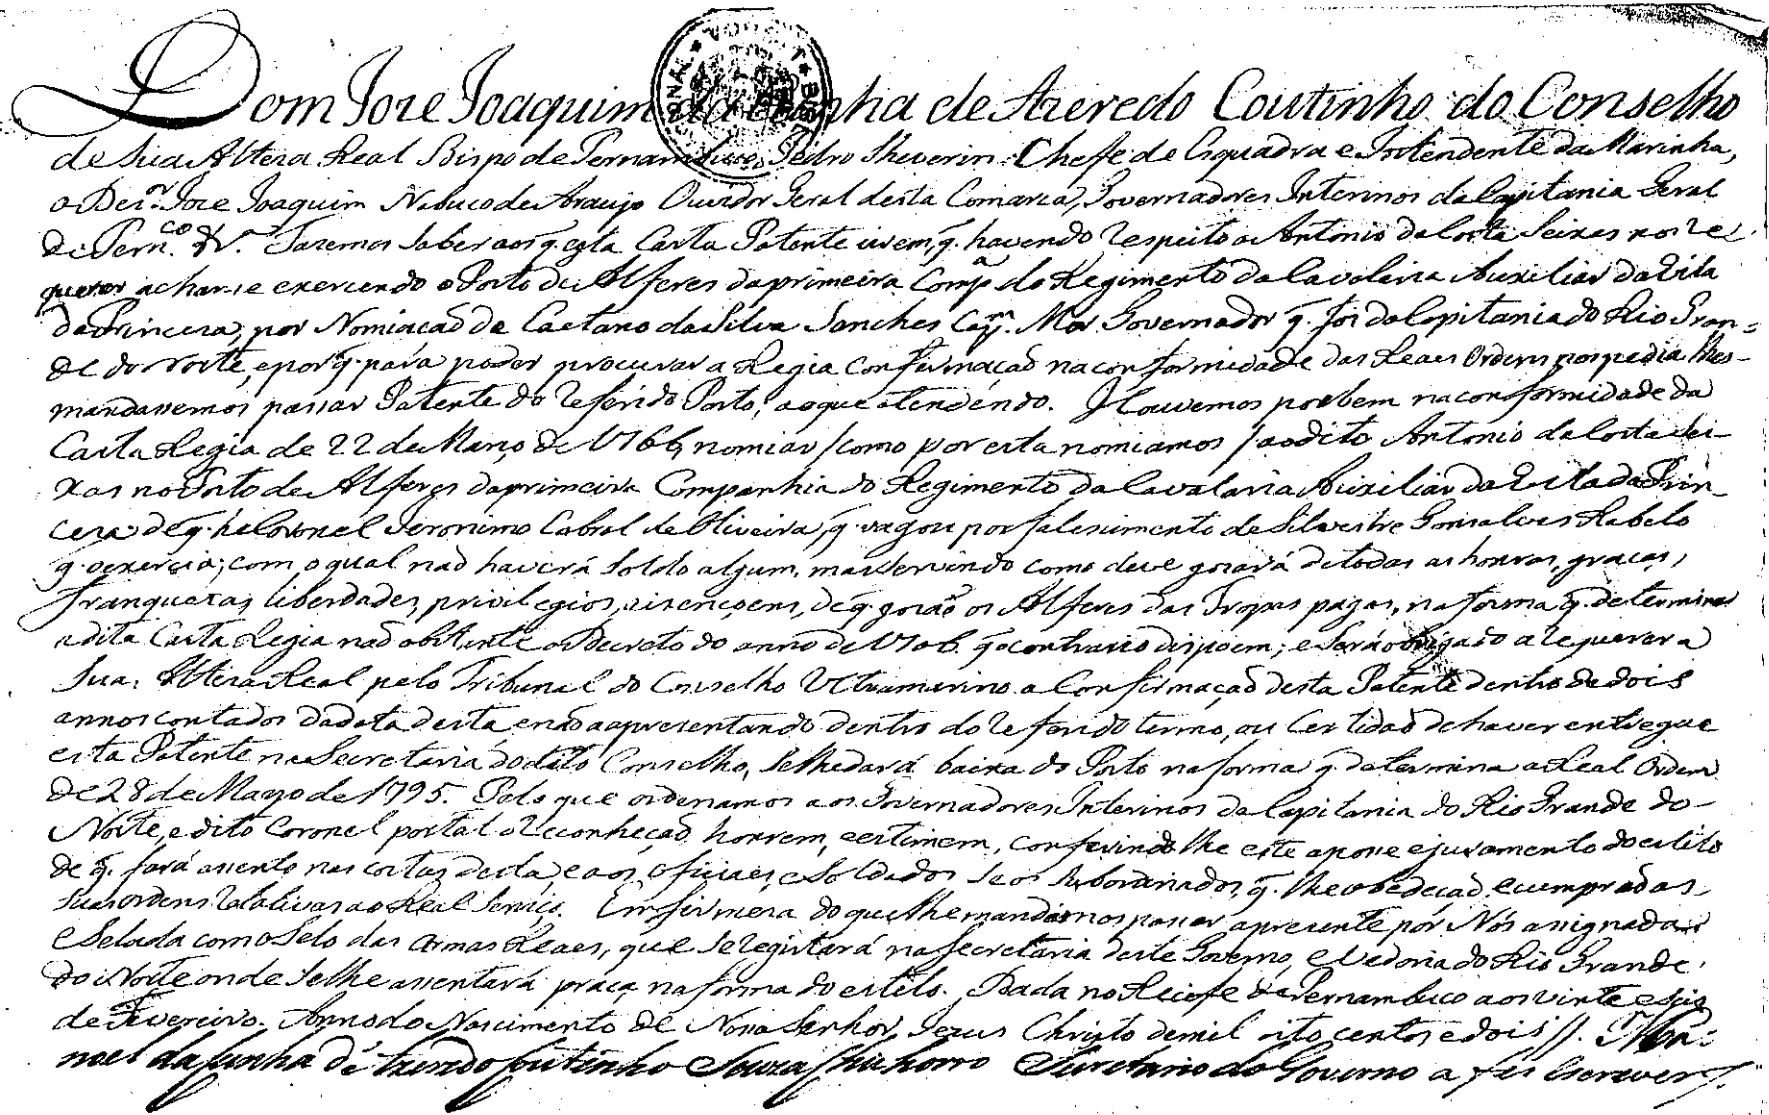 Dom Joze Joaquim da Cunha de Azeredo Coutinho do Conselho
de Sua Alteza Real Bispo de Pernambuco, Pedro Sheverin Chefe de Esquadra e Intendente da Marinha,
o Dez.or Joze Joaquim Nabuco de Araujo Ouvidor Geral desta Comarca, Governadores Interinos da Capitania Geral
de Pern.co &.ª Fazemos saber aos q. esta Carta Patente virem, q. havendo respeito a Antonio da Costa Seixas nos re-
querer achar-se exercendo o Posto de Alferes da primeira Comp.a do Regimento da Cavalaria Auxiliar da Vila
da Princeza, por Nomiacaõ de Caetano da Silva Sanches Cap.m Mor Governador q. foi da Capitania do Rio Gran=
de do Norte, e por q. para poder procurar a Regia Confirmaçaõ na conformidade das Reaes Ordens nos pedia lhes
mandassemos passar Patente do referido Posto, ao que atendendo. Houvemos por bem na conformidade da
Carta Regia de 22 de Março de 1766, nomiar / como por esta nomiamos / ao dito Antonio da Costa Sei-
xas no Posto de Alferes da primeira Companhia do Regimento da Cavalaria Auxiliar da Vila da Prin-
ceza de q. he Coronel Jeronimo Cabral de Oliveira, q. vagou por falescimento de Silvestre Gonsalves Rabelo
q. o exercia; com o qual naõ haverá Soldo algum, mas servindo como deve gozará de todas as honras, graças,
franquezas, liberdades, privilegios, e isençoens, de q. gozaõ os Alferes das Tropas pagas, na forma q. determina
a dita Carta Regia naõ obstante o Decreto do anno de 1706 q. o contrario dispoem; e será obrigado a requerer a
Sua Alteza Real pelo Tribunal do Conselho Ultramarino a Confirmaçaõ desta Patente dentro de dois
annos contados da data desta, e naõ a apresentando dentro do referido termo, ou Certidaõ de haver entregue
esta Patente na Secretaria do dito Conselho, se lhe dará baixa do Posto na forma q. determina a Real Ordem
de 28 de Março de 1795. Pelo que ordenamos aos Governadores Interinos da Capitania do Rio Grande do
Norte, e dito Coronel por tal o reconheçaõ, honrem, e estimem, conferindo lhe este a posse e juramento do estilo
de q. fará assento nas costas desta, e aos Oficiaes, e Soldados seos subordinados, q. lhe obedeçaõ, e cumpraõ as
suas ordens relativas ao Real Serviço. Em firmeza do que lhe mandámos passar a prezente por Nós assignada
e Selada com o Selo das Armas Reaes, que se registará na Secretaria deste Governo, e Vedoria do Rio Grande
do Norte onde se lhe assentará praça na forma do estilo. Dada no Recife de Pernambuco aos vinte e seis
de Fevereiro. Anno do Nascimento de Nosso Senhor Jezus Christo de mil oito centos e dois //. Ma-
noel da Cunha de Azeredo Coutinho Souza Chichorro Secretario do Governo a fes escrever //.